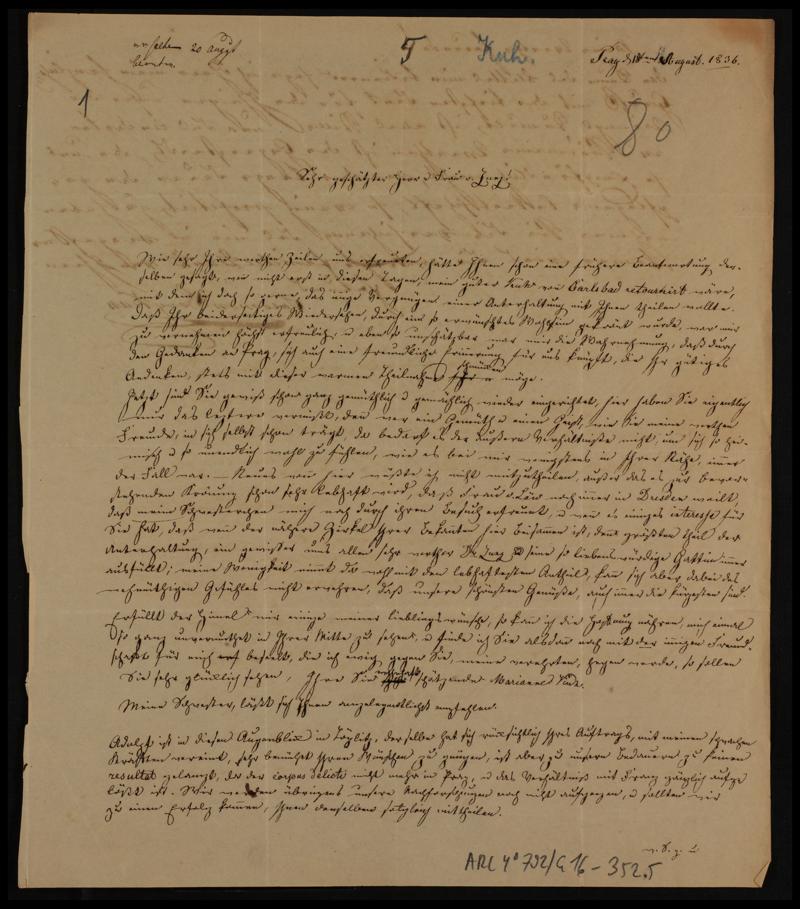 erhalten 20 Augst
5 Kuh.
Prag d 18 August. 1836.
1
80
Sehr geschätzter Herr u Frau v. Zunz!
Wie sehr Ihre werthen Zeilen uns erfreuten, hätte Ihnen schon eine frühere Beantwortung der-
selben gesagt, wenn nicht erst in diesen Tagen, mein guter von Carlsbad retournirt wäre,
mit dem ich doch so gerne, das Vergnügen einer Unterhaltung mit Ihnen theilen wollte.
Daß Ihr beiderseitiges Wiedersehen, durch ein so erwünschtes Wohlsein gekrönt wurde, war mir
zu vernehmen höchst erfreulich, u eben so unschätzbar war mir die Wahrnehmung, daß durch
den Gedanken an Prag, sich auch eine freundliche Erinnerung für uns knüpft, die Ihr gütiges
Andenken, stets mit dieser warmen Theilnahme möge.
Jetzt sind Sie gewiß schon ganz gemüthlich u gemächlich wieder eingerichtet, hier haben Sie eigentlich
nur das letztere vermißt, denn wer ein Gemüth u einen Geist, wie Sie meine werthen
Freunde, in sich selbst schon trägt, da bedarf es der äußern Verhältniße nicht, um sich so hei-
misch u so unendlich wohl zu fühlen, wie es bei mir wenigstens in Ihrer Nähe, immer
der Fall war. — Neues von hier wüßte ich nicht mitzutheilen, außer daß es zur bevor-
stehenden Krönung schon sehr lebhaft wird, daß Frau v Löw noch immer in Dresden weilt,
daß meine Schwester mich noch durch ihren Besuch erfreut, u wenn es einiges interesse für
Sie hat, daß wenn der nähere Zirkel Ihrer Bekannten hier beisammen ist, den größten Theil der
Unterhaltung, ein gewisser uns allen sehr werther Dr Zunz u seine so liebenswürdige Gattin immer
ausfüllt; meine Wenigkeit nimmt da noch mit den lebhaftesten Antheil, kan sich aber dabei des
wehmüthigen Gefühles nicht erwehren, daß unsere schönsten Genüße, auch immer die kürzesten sind.
Erfüllt der Himel mir einige meiner lieblingswünsche, so kan ich die Hoffnung nähren, mich einmal
so ganz unvermuthet in Ihrer Mitte zu sehen, u finde ich Sie alsdan noch mit der innigen Freund-
schaft für mich beseelt, die ich ewig gegen Sie, meine verehrten, hegen werde, so sollen
Sie sehr glücklich sehen, Ihre Sie schätzende Mariane
Meine Schwester, läßt sich Ihnen angelegentlichst empfehlen.
Adolf ist in diesen Augenblick in Töplitz, derselbe hat sich rücksichtlich Ihres Auftrags, mit meinen schwachen
Kräften vereint, sehr bemüht Ihren Wünschen zu genügen, ist aber zu unsern Bedauern zu keinen
resultat gelangt, da der corpus delicti nicht mehr in Prag, u das Verhältniß mit Franz gänzlich aufge
lößt ist. Wir werden übrigens unsere Nachforschungen noch nicht aufgeben, u sollten wir
zu einen Erfolg kommen, Ihnen denselben sogleich mittheilen.
ARC 4° 792/G 16 – 352.5